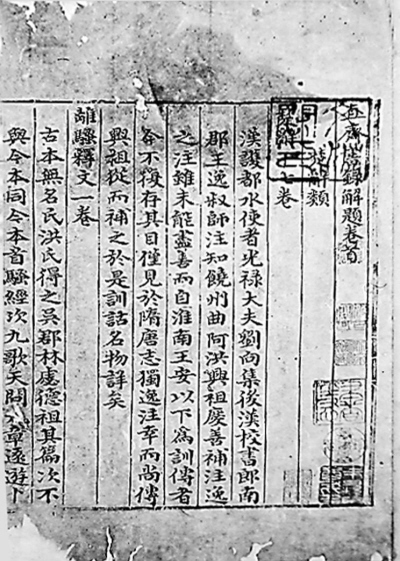 直齋書錄解題卷
楚辭類
楚辭十七卷
漢護都水使者光祿大夫劉向集後漢校書郎南
郡王逸叔師注知饒州曲阿洪興祖慶善補注逸
之注雖未能盡善而自淮南王安以下為訓傳者
今不復存其目僅見於隋唐志獨逸注幸而尚傳
興祖從而補之於是訓詁名物詳矣
離騷釋文一卷
古本無名氏洪氏得之吳郡林慮德祖其篇次不
與今本同今本首騷經次九歌天問九章遠遊卜